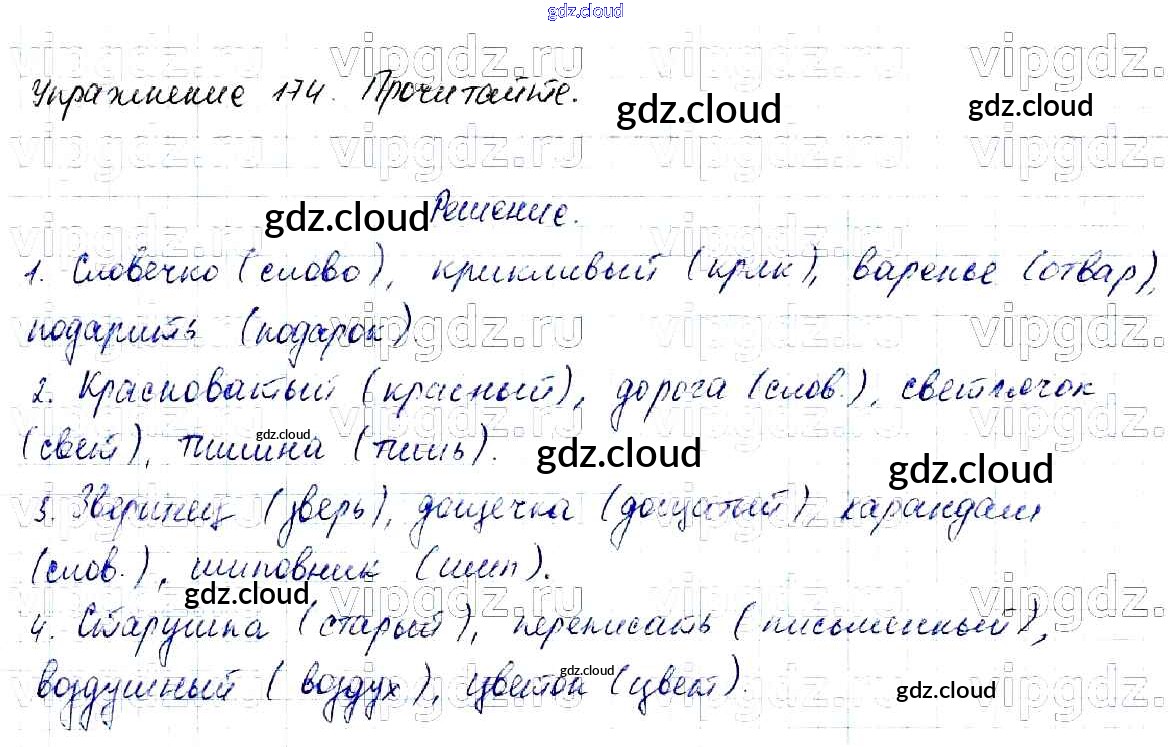 gdz.cloud
Упражнение 174. Прочитайте.
gdz.cloud gdz.cloud
gdz.cloud Решение.
1. Словечко (слово), крикливый (крик), варенье (отвар),
подарить (подарок).
2. Красноватый (красный), дорога (слов.), светлячок
(свет), тишина (тишь).
gdz.cloud gdz.cloud gdz.cloud
3. Зверинец (зверь), дощечка (дощатый), карандаш
(слов.), шиповник (шип).
gdz.cloud
4. Старушка (старый), переписать (письменный),
воздушный (воздух), цветок (цвет).
gdz.cloud gdz.cloud
vipgdz.ru